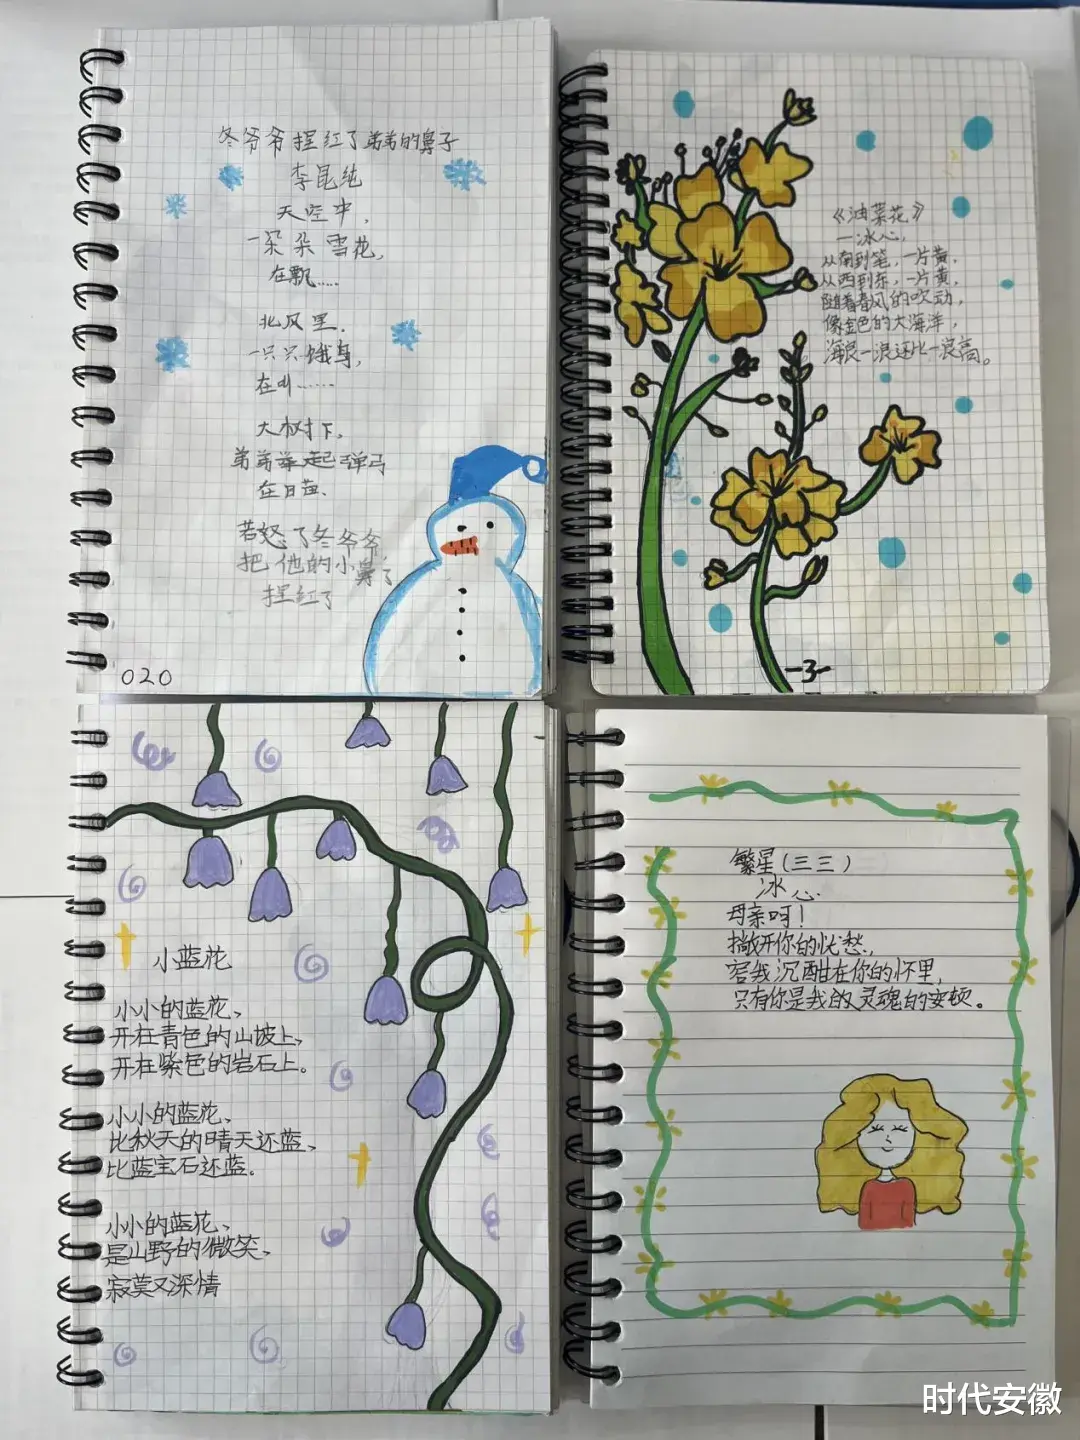 冬爷爷捏红了弟弟的鼻子
李昆纯
天空中，
一朵朵雪花，
在飘……
北风里，
一只只饿鸟，
在叫……
大树下，
弟弟举起弹弓
在日苗、
若怒了冬爷爷
把他的小鼻子
捏红了
020
《油菜花》
—冰心，
从南到笔，一片黄，
从西到东，一片黄，
随着春风的吹动，
像金色的大海洋，
海浪一浪还比一浪高。
-3-
小蓝花
小小的蓝花、
开在青色的山坡上、
开在紫色的岩石上。
小小的蓝花、
比秋天的晴天还蓝、
比蓝宝石还蓝。
小小的蓝花、
是山野的微笑、
寂莫又深情
繁星（三三）
冰心
母亲呵！
撇开你的忧愁，
容我沉酣在你的怀里，
只有你是我的灵魂的安顿。
时代安徽